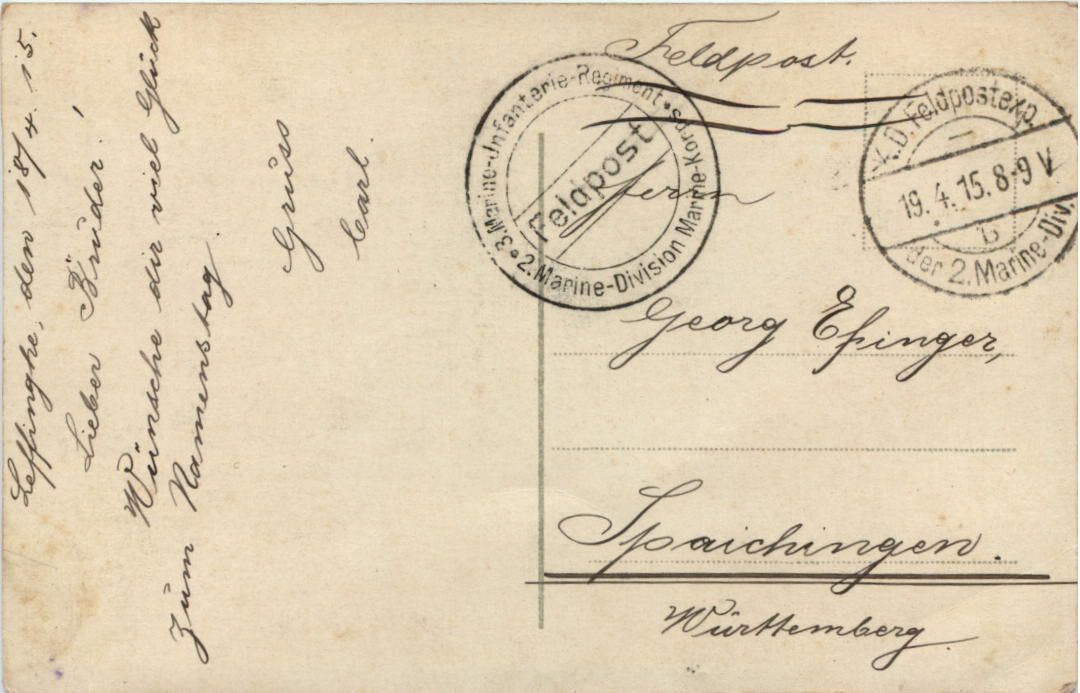 Leffinghe, den 18/4. 15.
Lieber Bruder!
Wünsche dir viel Glück
zum Namenstag
Gruss
Carl.
Feldpost.
3. Marine-Infanterie-Regiment * 2. Marine-Division Marine-Korps *
Feldpost
K.D. Feldpostexp.
19. 4. 15. 8-9 V
b
der 2. Marine-Div.
Herrn
Georg Efinger,
Spaichingen.
Württemberg